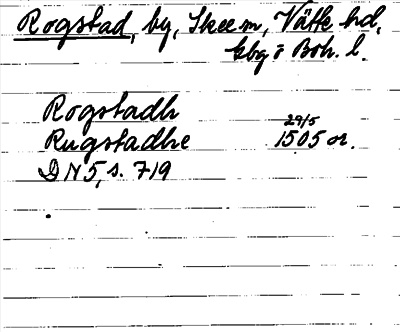 Rogstad, by, Skee sn, Vätte hd,
Gbg o Boh. l.
Rogstadh
29/5
Rugstadhe 1505 or.
DN 5, s. 719